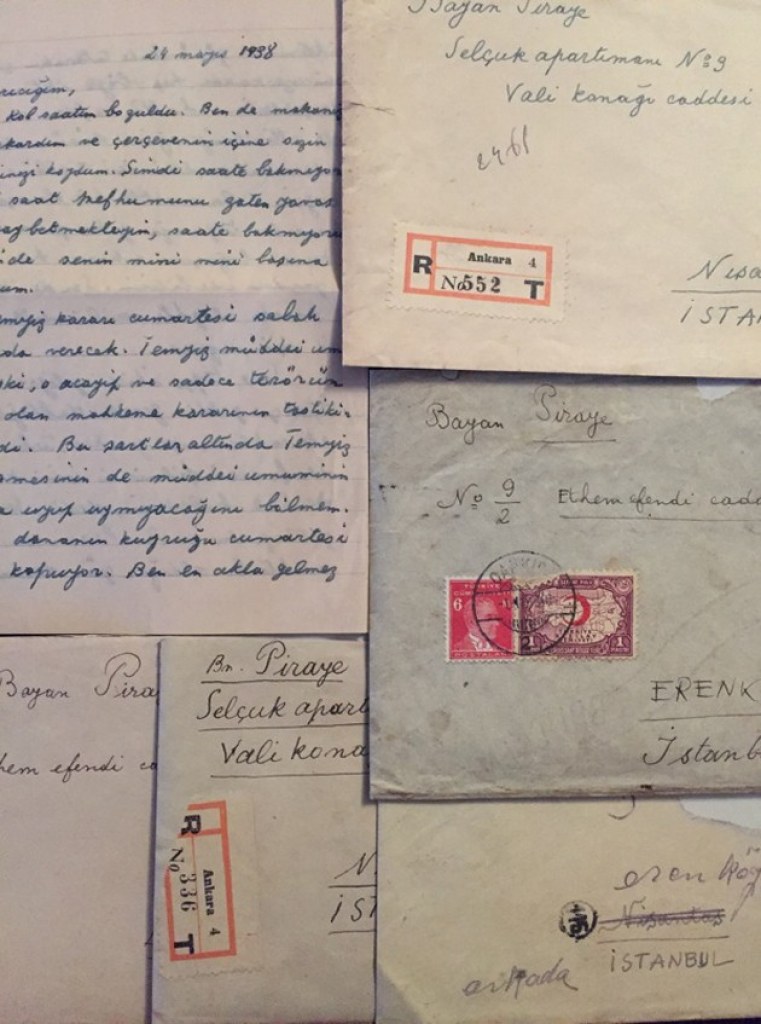 24 mayıs 1938
rıcığım,
kol saatim bozuldu. Ben de makana
kardım ve çerçevenin içine sizin
ninizi koydum. Şimdi saate bakmıyor
saat mefhumunu zaten yavaş
aybetmekteyim, saate bakmıyor
ide senin mini mini başına
um.
emyiz kararı cumartesi sabah
nda verecek. Temyiz müddei um
ki, o acayip ve sadece terörün
olan mahkeme kararının tastiki-
di. Bu şartlar altında Temyiz
mesinin de müddei umuminin
a uyup uymıyacağını bilmem.
dananın kuyruğu cumartesi
kopuyor. Ben en akla gelmez
Bayan Piraye
Selçuk apartımanı No 9
Vali konağı caddesi
2461
R Ankara 4
No 552 T
Nişa
İSTA
Bayan Piraye
No 9/2 Ethem efendi cadd
TÜRKİYE
6
POSTALARI
2½ 1
ERENK
İstanb
Bayan Pira
hem efendi ca
Bn. Piraye
Selçuk apart
Vali kona
R Ankara 4
No 336 T
N
İST
eren köy
Nişantaş
İSTANBUL
arkada